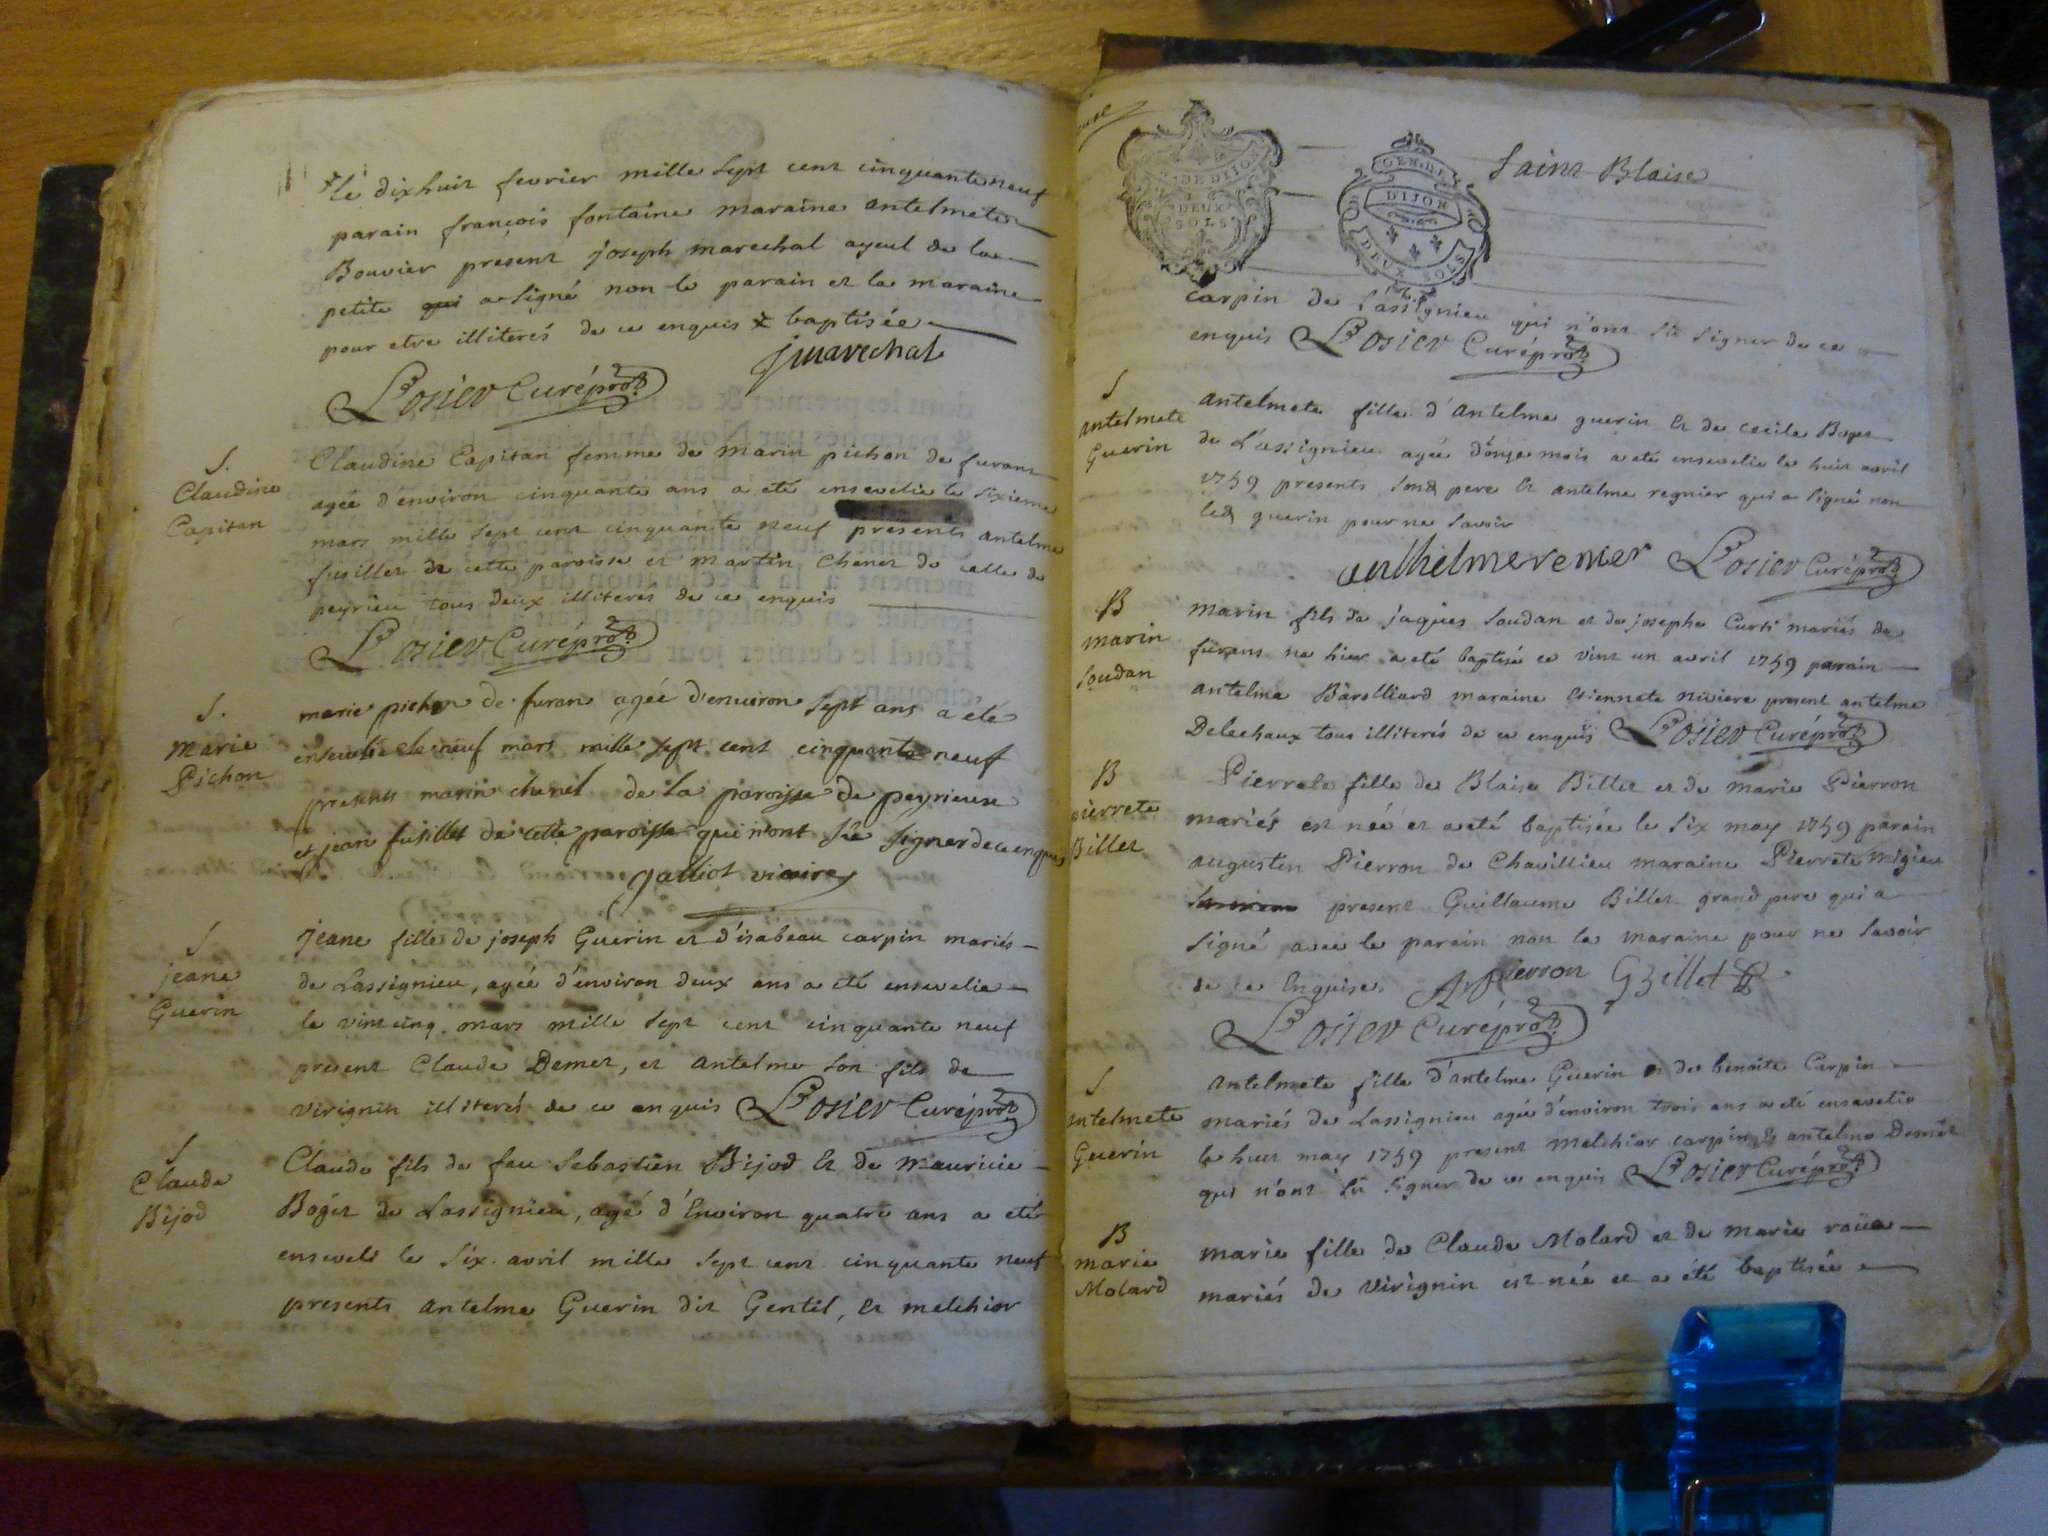 le dixhuit fevrier mille sept cent cinquante neuf
parain françois fontaine maraine antelmete
Bouvier present joseph marechal ayeul de la
petite qui a signé non le parain et la maraine
pour etre illiterés de ce enquis baptisée
jmarechal
Losier Curé
S.
Claudine
Capitan
Claudine Capitan femme de marin pichon de furans
agée d'environ cinquante ans a été ensevelie le sixieme
mars mille sept cent cinquante neuf presents antelme
fusillet de cette paroisse et martin Chenet de celle de
peyrieu tous deux illiterés de ce enquis
Losier Curé
S.
marie
Pichon
marie pichon de furan agée d'environ sept ans a été
ensevelie le neuf mars mille sept cent cinquante neuf
presents marin chenet de la paroisse de peyrieux
et jean fusillet de cette paroisse qui n'ont sü signer de ce enquis
Jalliot vicaire
S
jeane
Guerin
Jeane fille de joseph Guerin et d'isabeau carpin mariés
de Lassignieu, agée d'environ deux ans a été ensevelie
le vint cinq mars mille sept cent cinquante neuf
present Claude Demet, et antelme son fils de
virignin illiterés de ce enquis Losier Curé
S
Claude
Bijod
Claude fils de feu Sebastien Bijod et de Mauricie
Bogét de Lassignieu, agé d'environ quatre ans a été
enseveli le six avril mille sept cent cinquante neuf
presents antelme Guerin dit Gentil, et melchior
DE DIJON
DEUX
SOLS
GEN. DE
DIJON
DEUX SOLS
Saint Blaise
carpin de Lassignieu qui n'ont sü signer de ce
enquis Losier Curé
S
antelmete
Guerin
antelmete fille d'Antelme guerin et de cecile Boget
de Lassignieu agée d'onze mois a eté ensevelie le huit avril
1759 presents sond pere et antelme regnier qui a signé non
led guerin pour ne savoir
anthelme renier Losier Curé
B
marin
Soudan
marin fils de jaques Soudan et de josephe Curti mariés de
furans ne hier a eté baptisé ce vint un avril 1759 parain
antelme Barolliard maraine Etiennete riviere present antelme
Delechaux tous illiterés de ce enquis Losier Curé
B
pierrete
Billet
Pierrete fille de Blaise Billet et de marie Pierron
mariés est née et a eté baptisée le six may 1759 parain
augustin Pierron de Chavillieu maraine Pierrete migieu
present Guillaume Billet grand pere qui a
signé avec le parain non la maraine pour ne savoir
de ce Enquise. A Pierron G Billet
Losier Curé
S
antelmete
Guerin
Antelmete fille d'antelme Guerin et de benoite Carpin
mariés de Lassignieu agée d'environ trois ans a eté ensevelie
le huit may 1759 present Melchior carpin et antelme Demét
qui n'ont sü signer de ce enquis Losier Curé
B
marie
Molard
marie fille de Claude Molard et de marie roüe
mariés de virignin est née et a été baptisée